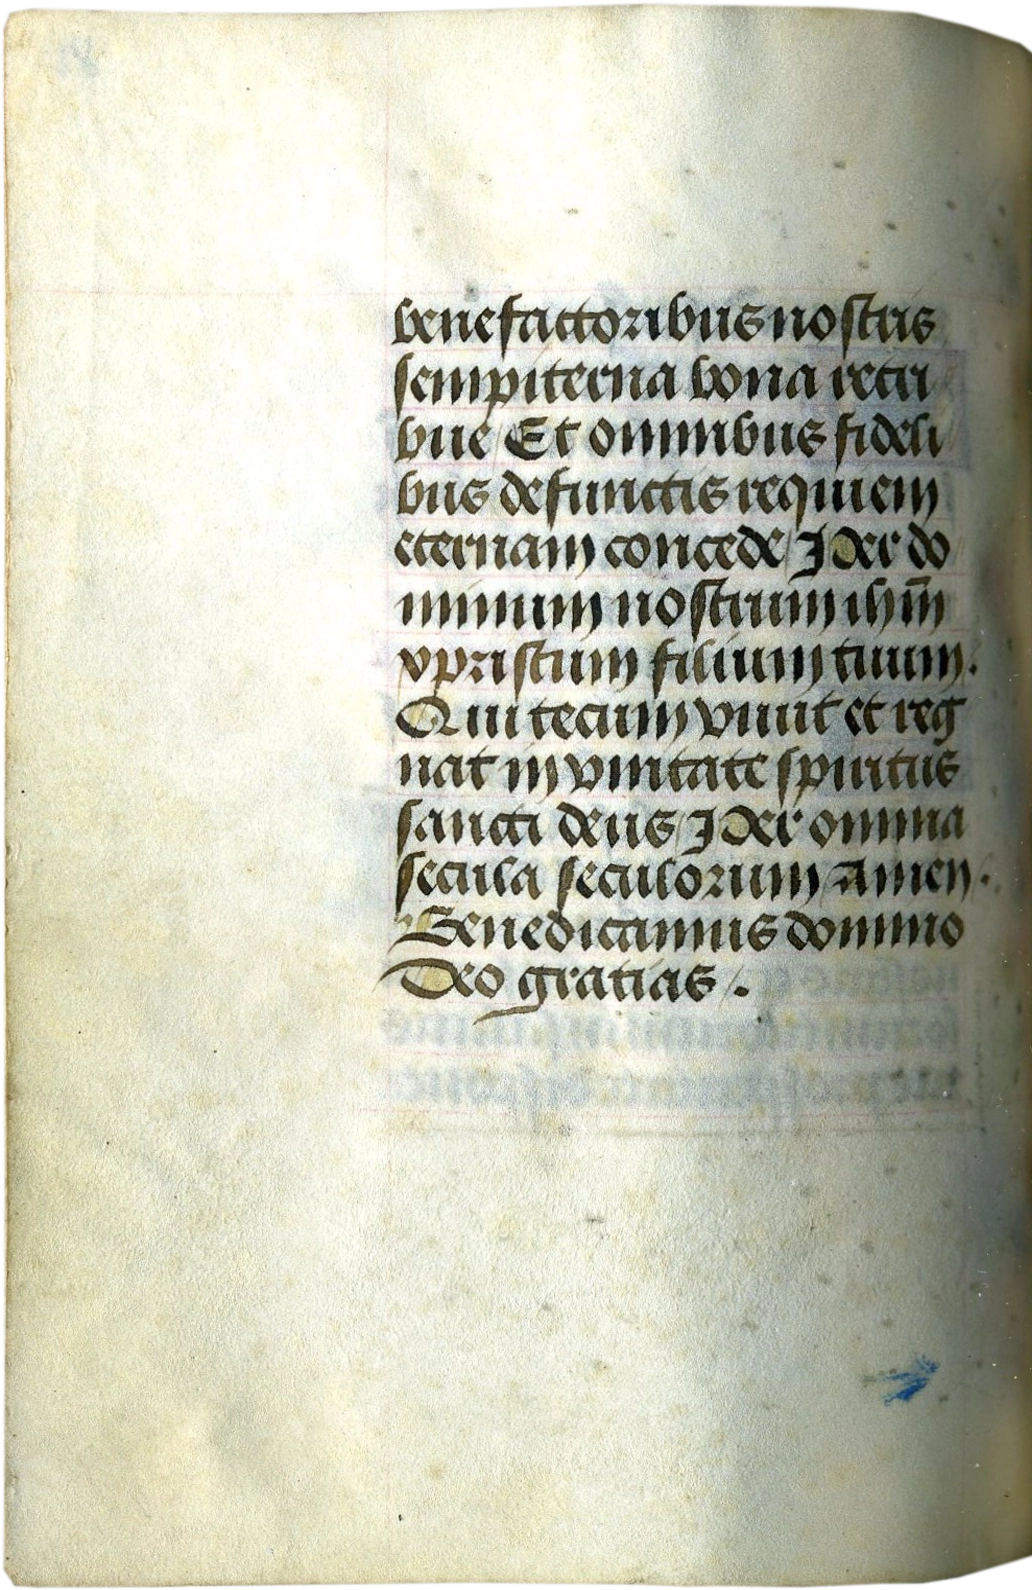 benefactoribus nostris
sempiterna bona retri
bue Et omnibus fideli
bus defunctis requiem
eternam concede Per do
minum nostrum ihm̄
xpristum filium tuum.
Qui tecum viuit et reg
nat in vnitate spiritus
sancti deus Per omnia
secula seculorum amen.
Benedicamus domino
Deo gratias.